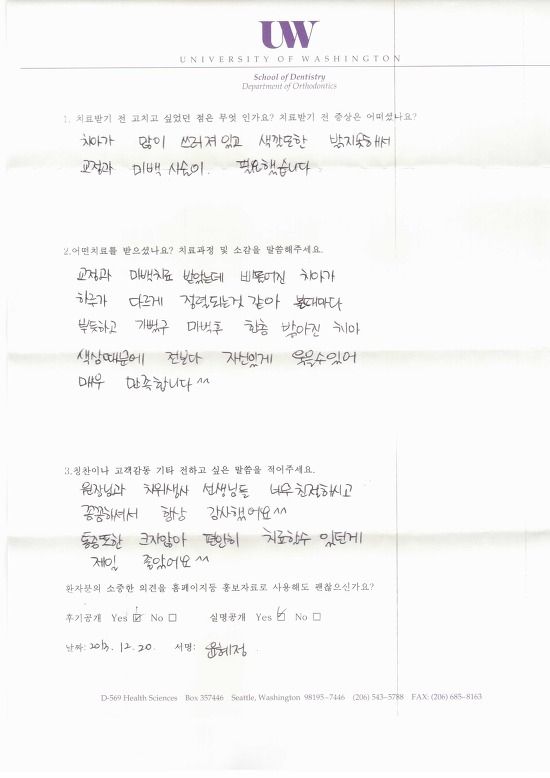 UW
UNIVERSITY OF WASHINGTON
School of Dentistry
Department of Orthodontics
1. 치료받기 전 고치고 싶었던 점은 무엇 인가요? 치료받기 전 증상은 어떠셨나요?
치아가 많이 쓰러져있고 색깔또한 밝지못해서
교정과 미백 시술이 필요했습니다
2.어떤치료를 받으셨나요? 치료과정 및 소감을 말씀해주세요.
교정과 미백치료 받았는데 삐뚤어진 치아가
하루가 다르게 정렬되는것 같아 볼때마다
뿌듯하고 기뻤구 미백후 한층 밝아진 치아
색상때문에 전보다 자신있게 웃을수있어
매우 만족합니다^^
3.칭찬이나 고객감동 기타 전하고 싶은 말씀을 적어주세요.
원장님과 치위생사 선생님들 너무친절하시고
꼼꼼하셔서 항상 감사했어요^^
통증또한 크지않아 편안히 치료할수 있던게
제일 좋았어요^^
환자분의 소중한 의견을 홈페이지등 홍보자료로 사용해도 괜찮으신가요?
후기공개 Yes ☑ No □ 실명공개 Yes ☑ No □
날짜: 2013. 12. 20. 서명: 윤혜정
D-569 Health Sciences Box 357446 Seattle, Washington 98195-7446 (206) 543-5788 FAX: (206) 685-8163